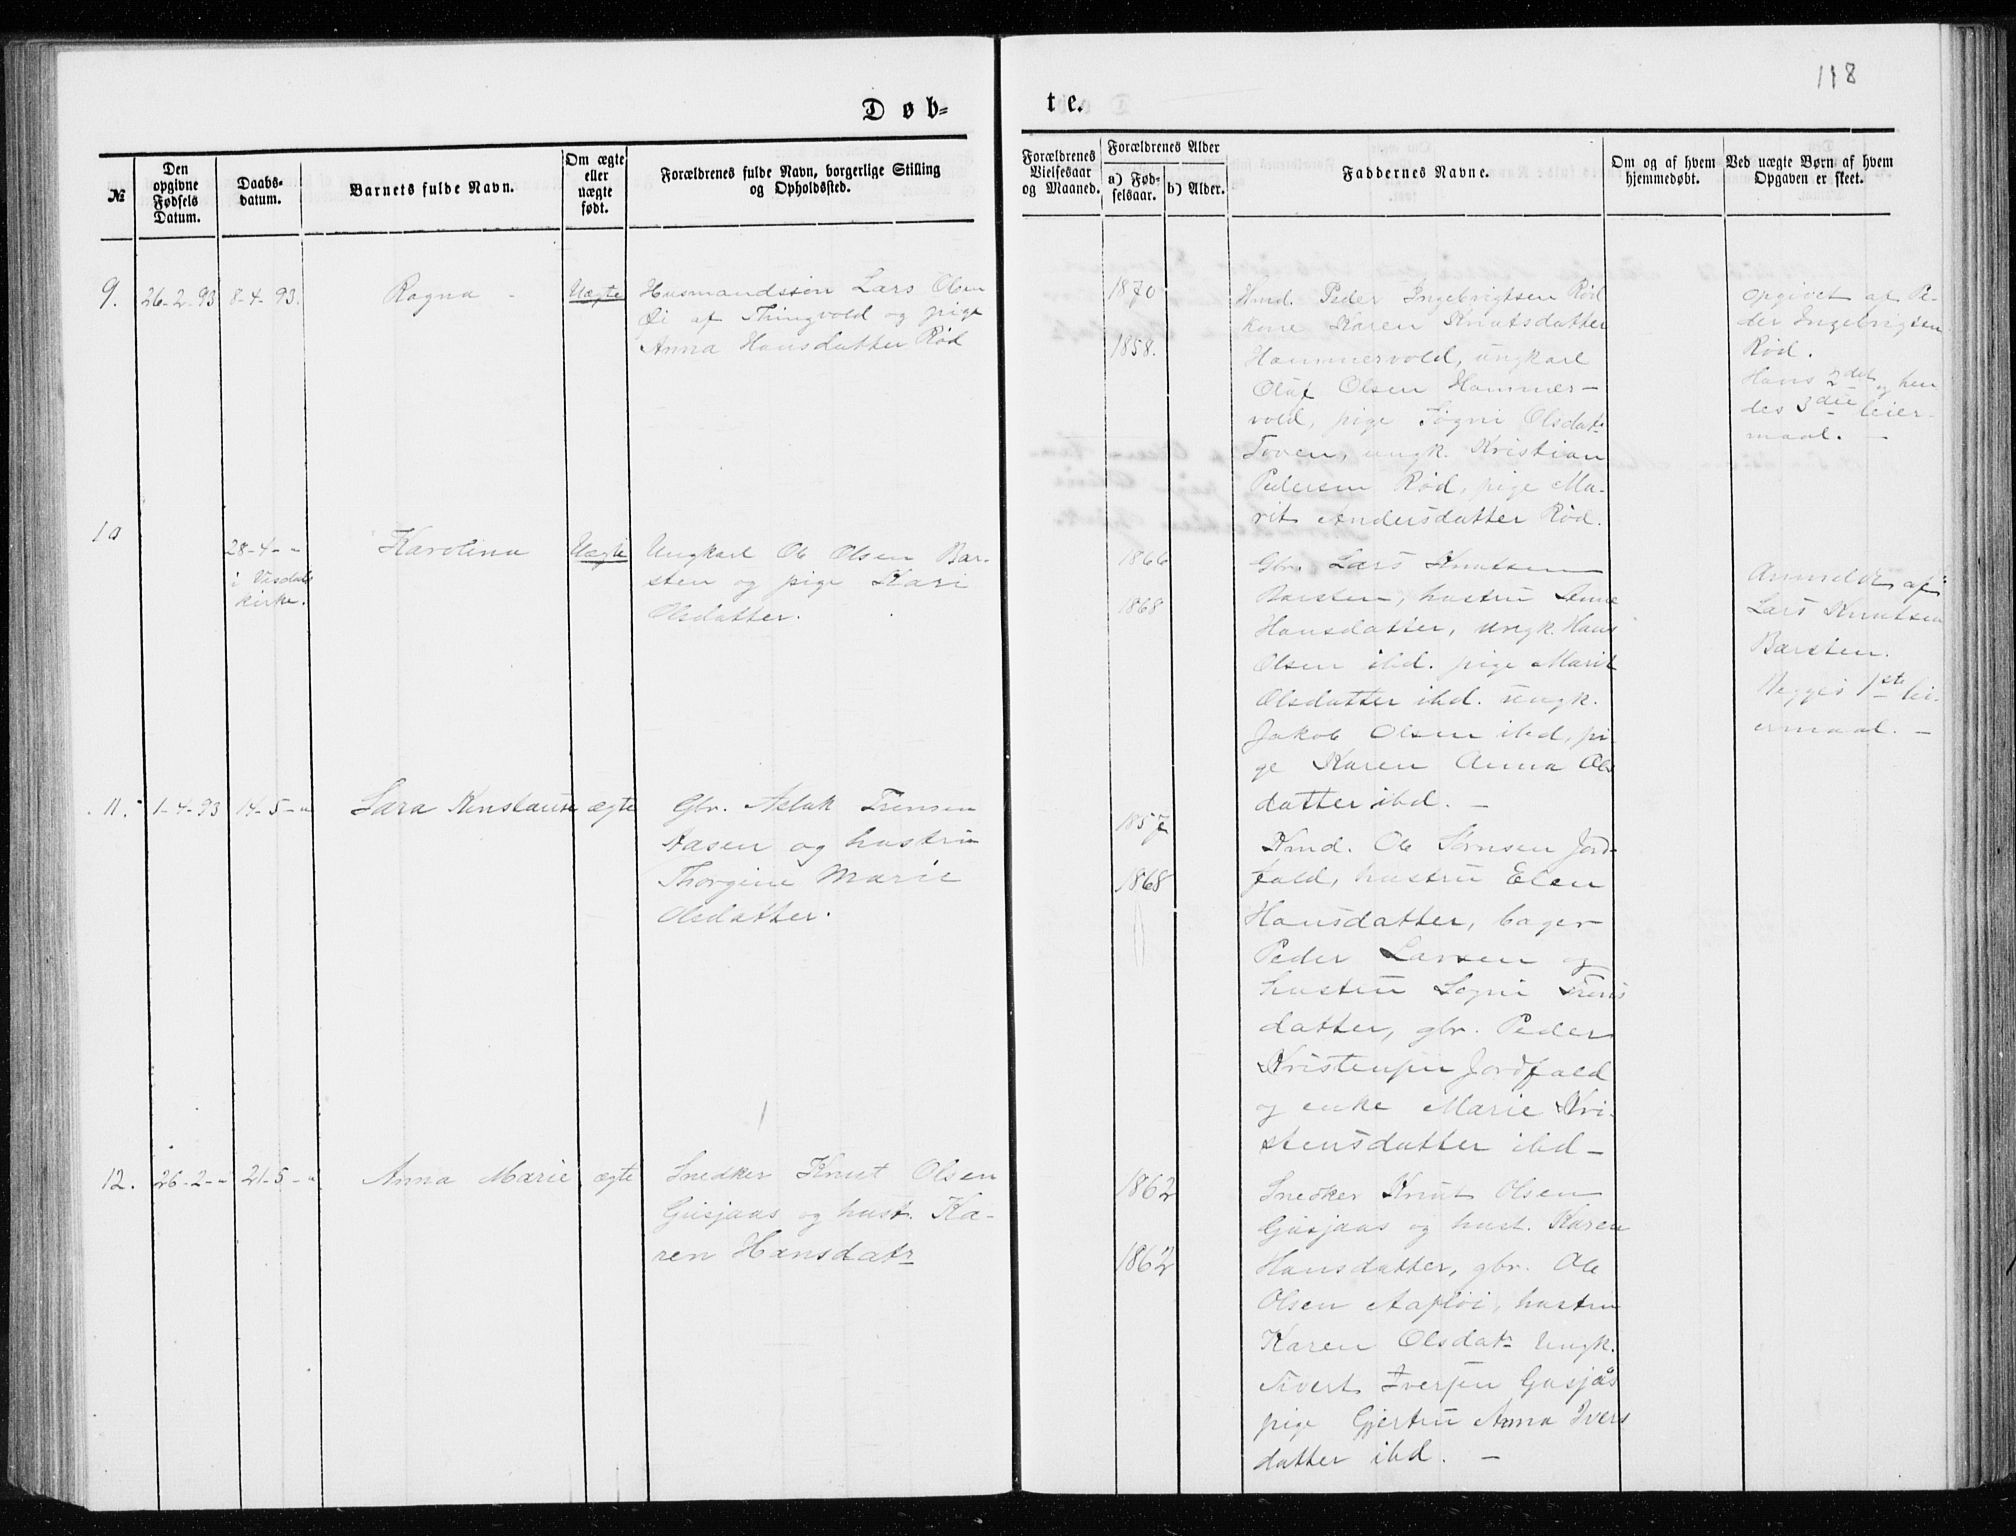 118
Døb=
te.
№
Den opgivne Fødsels Datum.
Daabs-datum.
Barnets fulde Navn.
Om ægte eller uægte født.
Forældrenes fulde Navn, borgerlige Stilling og Opholdssted.
Forældrenes Vielsesaar og Maaned.
Forældrenes Alder
a) Fød-selsaar.
b) Alder.
Faddernes Navne.
Om og af hvem hjemmedøbt.
Ved uægte Børn af hvem Opgaven er skeet.
9. 26-2-93 8-4-93. Ragna - Uægte
Husmandssøn Lars Olsen
Øi af Thingvold og pige
Anna Hansdatter Rød
1870
1858.
Hmd. Peder Ingebrigtsen Rød
kone Karen Knutsdatter
Hammervold, ungkarl
Oluf Olsen Hammer-
vold, pige Søgni Olsdatr
Toven, ungk. Kristian
Pedersen Rød, pige Ma-
rit Andersdatter Rød.
opgivet af Pe-
der Ingebrigtsen
Rød.
Hans 2det og hen
des 3die leier-
maal. -
10 28-4-"
i Visdals
kirke.
Karolina Uægte
Ungkarl Ole Olsen Bar-
sten og pige Kari
Olsdatter.
1866
1868
Gbr. Lars Knutsen
Barsten, hustru Anne
Hansdatter, ungk. Hans
Olsen ibd. pige Marit
Olsdatter ibd. ungk.
Jakob Olsen ibd, pi-
ge Karen Anna Ols
datter ibd. -
Anmeldt af
Lars Knutsen
Barsten.
Begges 1ste lei-
ermaal. -
11. 1-4-93 14-5-" Sara Konstanse ægte
Gbr. Aslak Trensen
Aasen og hustru
Thorgine Marie
Olsdatter.
1857
1868
Hmd. Ole Sørnsen Jord-
fald, hustru Elen
Hansdatter, bager
Peder Larsen og
hustru Søgni Trens
datter, gbr. Peder
Kristensen Jordfald
og enke Marie Kri-
stensdatter ibd-
12. 26-2-" 21-5-" Anna Marie ægte
Snedker Knut Olsen
Gusjaas og hust. Ka-
ren Hansdatr
1862
1862
Snedker Knut Olsen
Gusjaas og hust. Karen
Hansdatter, gbr. Ole
Olsen Aasløi, hustru
Karen Olsdatr Ungk.
Sivert Iversen Gusjås
pige Gjertru Anna Ivers
datter ibd. -